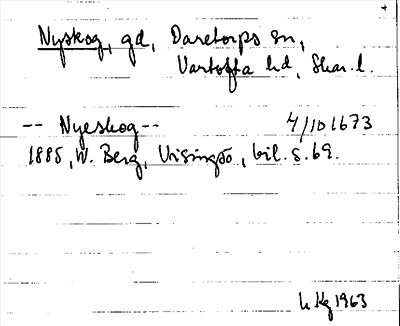 Nyskog, gd, Daretorps sn,
Vartofta hd, Skar. l.
-- Nyeskog -- 4/10 1673
1885, W. Berg, Visingsö, bil. s. 69.
1963